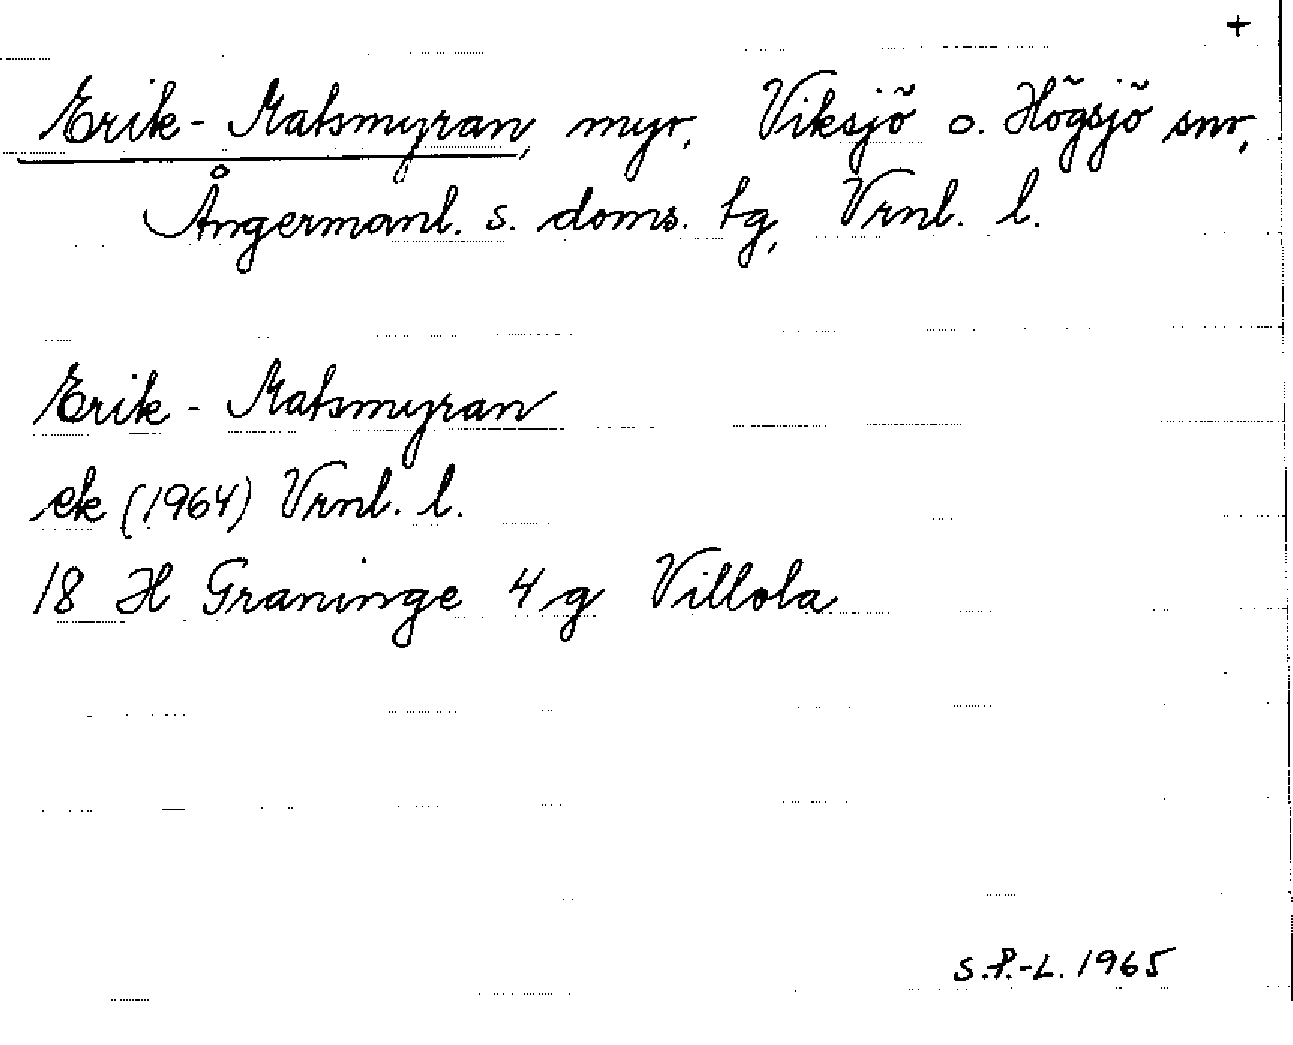 +
Erik-Matsmyran, myr, Viksjö o. Högsjö snr,
Ångermanl. s. doms. tg, Vrnl. l.
Erik-Matsmyran
ek (1964) Vrnl. l.
18 H Graninge 4 g Villola
S.P.-L. 1965